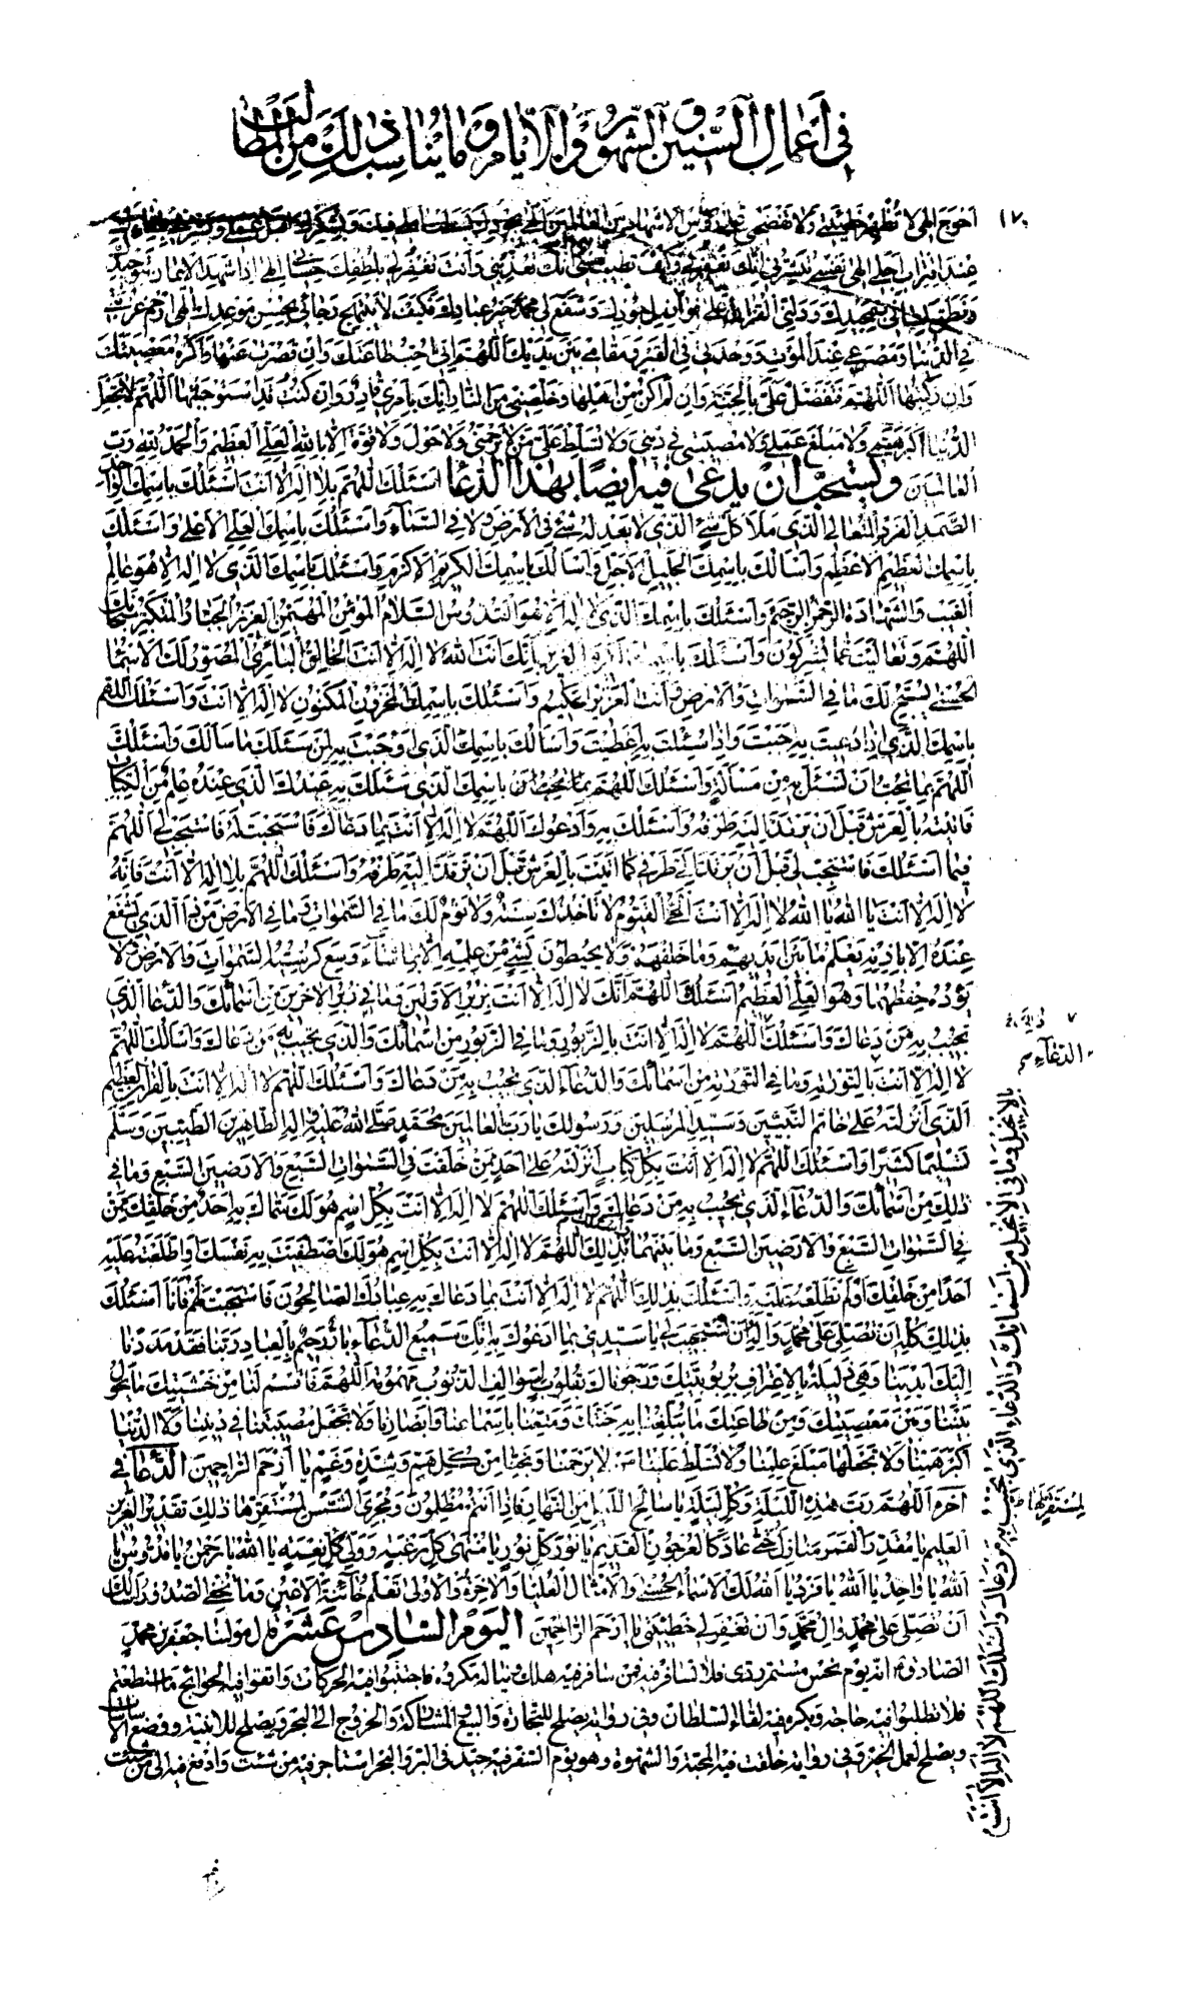 في أعمال السنين والشهور والأيام وما يناسب ذلك من المطالب
١٧٠
أحوج إلهي لا تظهر خطيئتي ولا تفضحني على رؤس الأشهاد من العالمين إلهي
عند اقتراب أجلي إلهي نفسي أنك تعذبني وأنت تغفر لي بلطفك إلهي إذا شهد لي الإيمان بتوحيدك
ونطق لساني بتمجيدك ودلني القرآن على فواضل جودك وشفع لي محمد خير عبادك فكيف لا يبتهج رجائي بحسن موعدك إلهي ارحم غربتي
في الدنيا ومصرعي عند الموت ووحدتي في القبر ومقامي بين يديك اللهم إني أحب طاعتك وإن قصرت عنها وأكره معصيتك
وإن ركبتها اللهم فتفضل علي بالجنة وإن لم أكن من أهلها وخلصني من النار إنك بأمري قادر وإن كنت قد استوجبتها اللهم لا تجعل
الدنيا أكبر همي ولا مبلغ عملي ولا مصيبتي في ديني ولا تسلط علي من لا يرحمني ولا حول ولا قوة إلا بالله العلي العظيم والحمد لله رب
العالمين ويستحب أن يدعى فيه أيضا بهذا الدعا أسئلك اللهم بلا إله إلا أنت أسئلك باسمك الواحد
الصمد الفرد المتعالي الذي ملأ كل شيء الذي لا يعدله شيء في الأرض ولا في السماء وأسئلك باسمك العلي الأعلى وأسئلك
باسمك العظيم الأعظم وأسألك باسمك الجليل الأجل وأسألك باسمك الكريم الأكرم وأسئلك باسمك الذي لا إله إلا هو عالم
الغيب والشهادة الرحمن الرحيم وأسئلك باسمك الذي لا إله إلا هو القدوس السلام المؤمن المهيمن العزيز الجبار المتكبر سبحانك
اللهم وتعاليت عما يشركون وأسئلك باسمك العزيز بأنك أنت الله لا إله إلا أنت الخالق البارئ المصور لك الأسماء
الحسنى يسبح لك ما في السموات والأرض وأنت العزيز الحكيم وأسئلك باسمك المخزون المكنون لا إله إلا أنت وأسئلك اللهم
باسمك الذي إذا دعيت به أجبت وإذا سئلت به أعطيت وأسألك باسمك الذي أوجبت به لمن سئلك ما سألك وأسئلك
اللهم بما تحب أن تسئل به من مسألة وأسئلك اللهم باسمك الذي سئلك به عبدك الذي عنده علم من الكتاب
فأتيته بالعرش قبل أن يرتد إليه طرفه وأسئلك به وأدعوك اللهم لا إله إلا أنت بما دعاك فاستجبت له فاستجب لي اللهم
فيما أسئلك فاستجب لي قبل أن يرتد إلي طرفي كما أتيت بالعرش قبل أن يرتد إليه طرفه وأسئلك اللهم بلا إله إلا أنت فإنه
لا إله إلا أنت يا الله يا الله لا إله إلا أنت الحي القيوم لا تأخذك سنة ولا نوم لك ما في السموات وما في الأرض من ذا الذي يشفع
عنده إلا بإذنه تعلم ما بين أيديهم وما خلفهم ولا يحيطون بشيء من علمه إلا بما شاء وسع كرسيه السموات والأرض ولا
يؤده حفظهما وهو العلي العظيم أسئلك اللهم أنك لا إله إلا أنت بزبر الأولين وما في زبر الآخرين من أسمائك والدعا الذي
تجيب به من دعاك وأسئلك اللهم لا إله إلا أنت بالزبور وما في الزبور من أسمائك والذي تجيب به من دعاك وأسألك اللهم
لا إله إلا أنت بالتورية وما في التورية من أسمائك والدعاء الذي تجيب به من دعاك وأسئلك اللهم لا إله إلا أنت بالقرآن العظيم
الذي أنزلته على خاتم النبيين وسيد المرسلين ورسولك يا رب العالمين محمد صلى الله عليه وآله الطاهرين الطيبين وسلم
تسليما كثيرا وأسئلك اللهم لا إله إلا أنت بكل كتاب أنزلته على أحد ممن خلقت في السموات السبع والأرضين السبع وما في
ذلك من أسمائك والدعاء الذي تجيب به من دعاك وأسئلك اللهم لا إله إلا أنت بكل اسم هو لك سماك به أحد من خلقك ممن
في السموات السبع والأرضين السبع وما بينهما بذلك اللهم لا إله إلا أنت بكل اسم هو لك اصطفيت به نفسك وأطلعت عليه
أحدا من خلقك أو لم تطلعه عليه وأسئلك بذلك اللهم لا إله إلا أنت بما دعاك به عبادك الصالحون فاستجبت لهم فأنا أسئلك
بذلك كله أن تصلي على محمد وآله وأن تستجيب لي يا سيدي بما أدعوك به إنك سميع الدعاء يا رحيم بالعباد ربنا فقد مددنا
إليك أيدينا وهي ذليلة بالاعتراف بربوبيتك ورجوناك بقلوب لسوالف الذنوب مهمومة اللهم فاقسم لنا من خشيتك ما يحول
بيننا وبين معصيتك ومن طاعتك ما تبلغنا به جنتك ومتعنا بأسماعنا وأبصارنا ولا تجعل مصيبتنا في ديننا ولا الدنيا
أكبر همنا ولا تجعلها مبلغ علمنا ولا تسلط علينا من لا يرحمنا ونجنا من كل هم وشدة وغم يا أرحم الراحمين الدعا في
آخره اللهم رب هذه الليلة وكل ليلة يا سالخ الليل من النهار فإذا هم مظلمون ومجري الشمس لمستقرها ذلك تقدير العزيز
العليم يا مقدر القمر منازل حتى عاد كالعرجون القديم يا نور كل نور يا منتهى كل رغبة وولي كل نعمة يا الله يا رحمن يا قدوس يا
الله يا واحد يا الله يا فرد يا الله لك الأسماء الحسنى والأمثال العليا والآخرة والأولى تعلم خائنة الأعين وما تخفي الصدور أسألك
أن تصلي على محمد وآل محمد وأن تغفر لي خطيئتي يا أرحم الراحمين اليوم السادس عشر قال مولنا جعفر بن محمد
الصادق ع إنه يوم نحس مستمر ردي فلا تسافر فيه فمن سافر فيه هلك ويناله مكروه فاجتنبوا فيه الحركات واتقوا فيه الحوائج ما استطعتم
فلا تطلبوا فيه حاجة ويكره فيه لقاء السلطان وفي رواية يصلح للتجارة والبيع والمشاركة والخروج إلى البحر ويصلح للأبنية ووضع الأساسات
ويصلح لعمل الخير وفي رواية خلقت فيه المحبة والشهوة وهو يوم السفر فيه جيد في البر والبحر استأجر فيه من شئت وادفع فيه إلى من شئت
الدعاء
بالإنجيل وما في الإنجيل من أسمائك والدعاء الذي تجيب به من دعاك وأسئلك اللهم لا إله إلا أنت
لمستقر لها